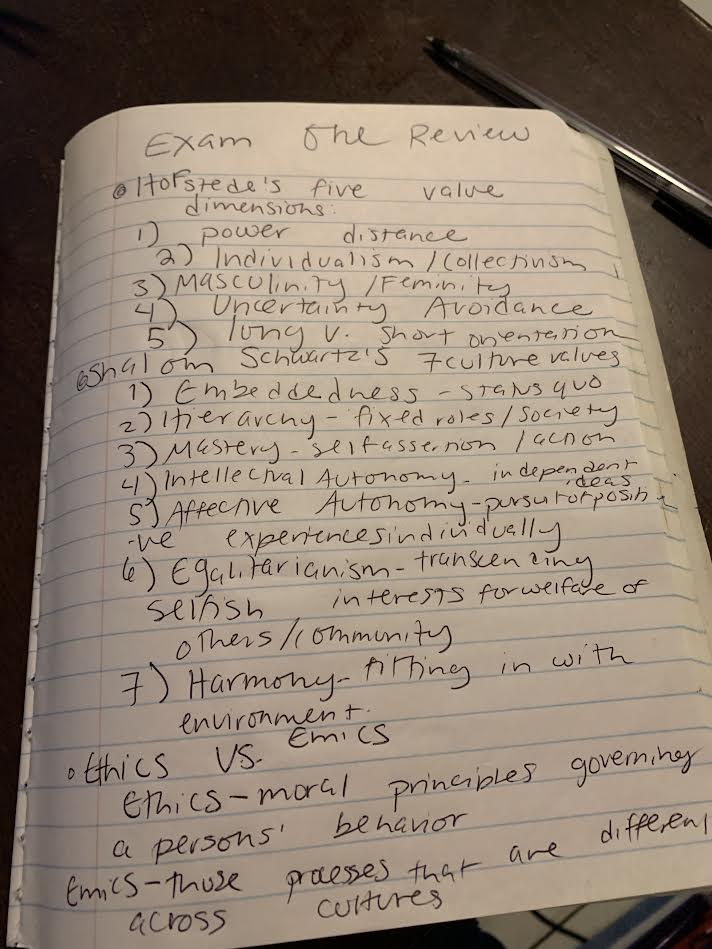 Exam One Review
Hofstede's five value
dimensions:
1) power distance
2) Individualism / Collectivism
3) Masculinity / Feminity
4) Uncertainty Avoidance
5) long v. short orientation
Shalom Schwartz's 7 culture values
1) Embeddedness - status quo
2) Hierarchy - fixed roles / society
3) Mastery - self assertion / action
4) Intellectual Autonomy - independent
ideas
5) Affective Autonomy - pursuit of positi
-ve experiences individually
6) Egalitarianism - transcending
selfish interests for welfare of
others / community
7) Harmony - fitting in with
environment.
• Ethics VS. Emics
Ethics - moral principles governing
a persons' behavior
Emics - those processes that are different
across cultures